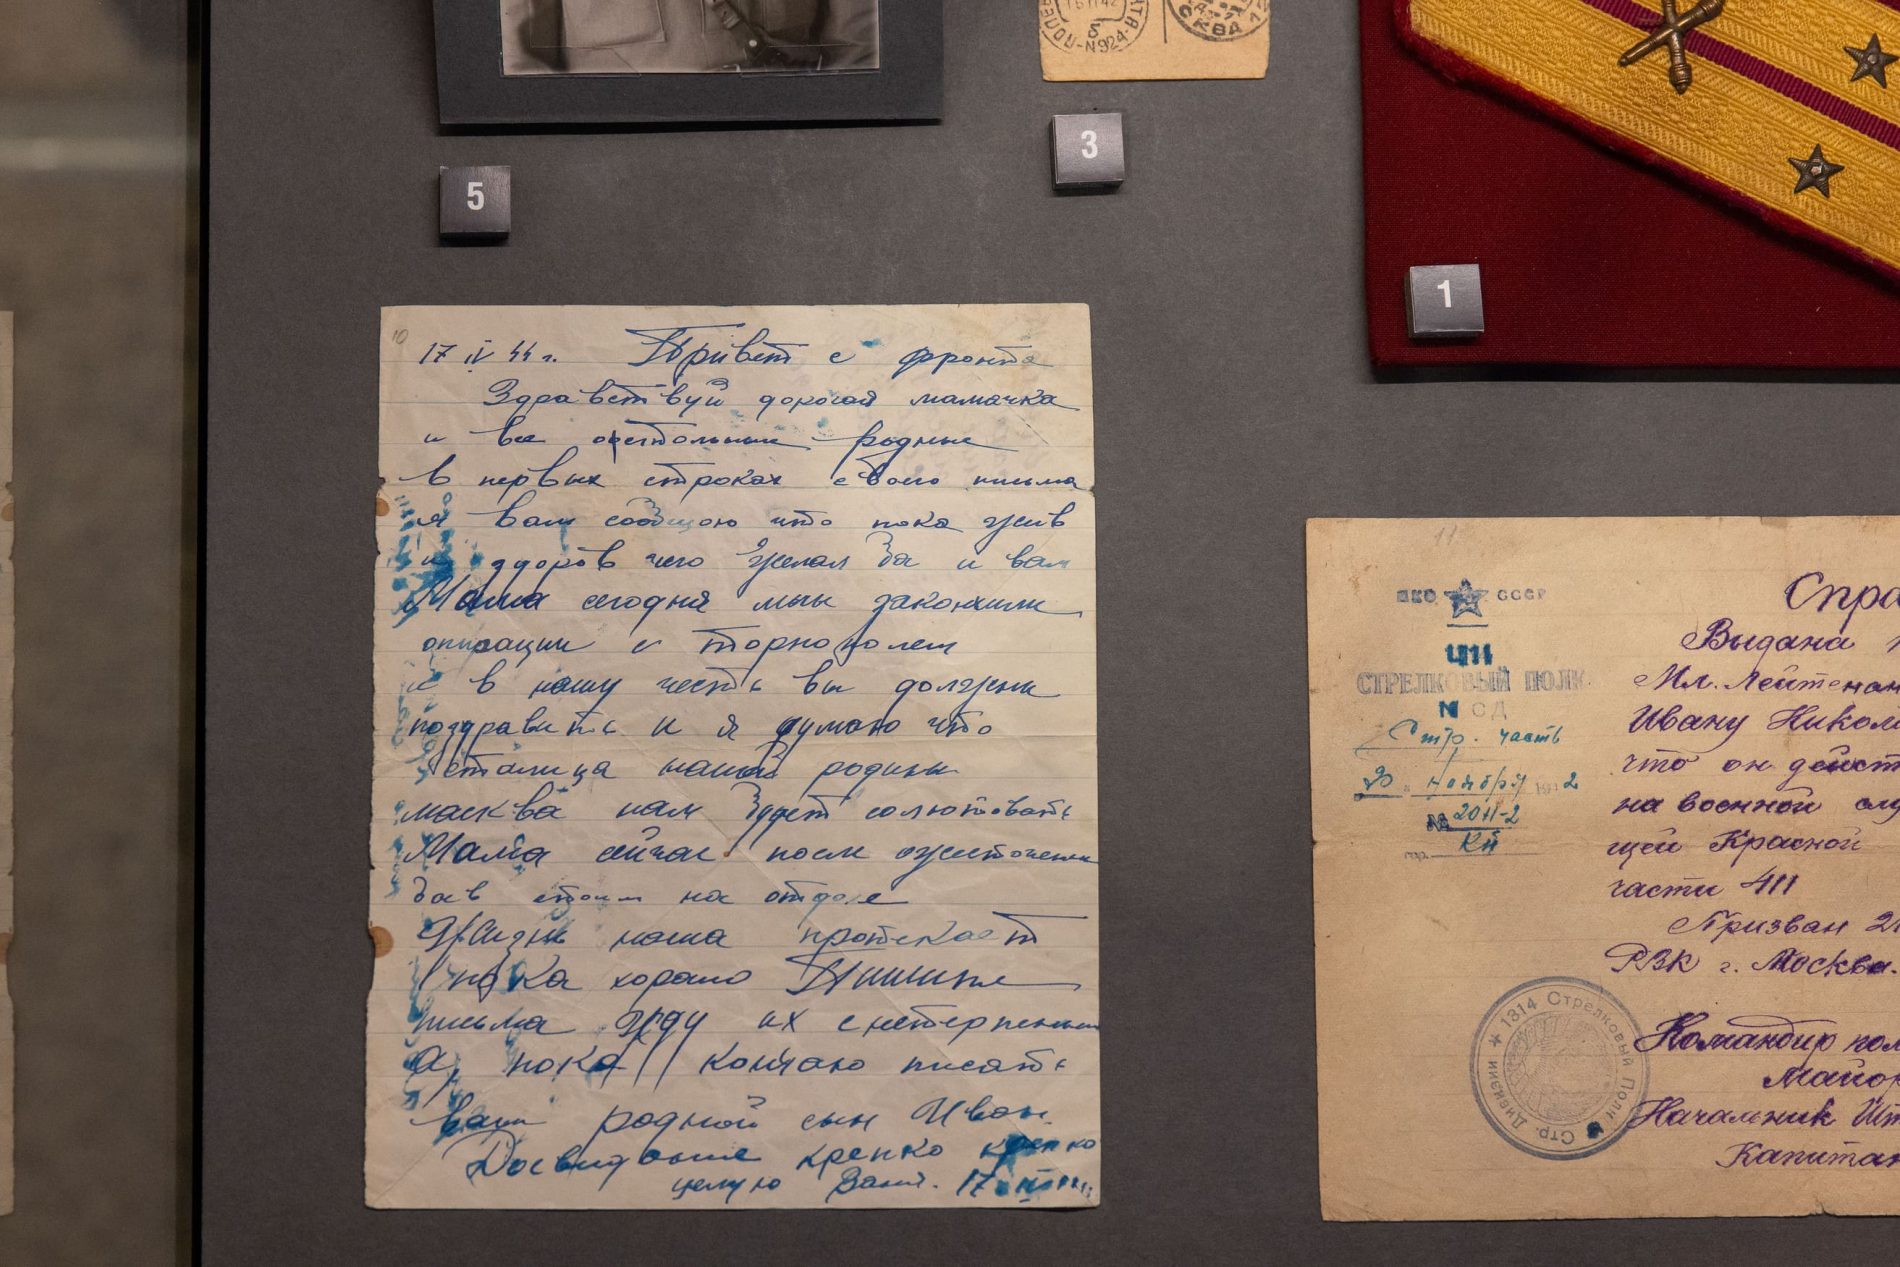 5
3
1
СКВА
N924
10
17 IV 44 г. Привет с фронта
Здравствуй дорогая мамачка
и все остольные родные
в первых строках своего письма
я вам сообщою что пока жив
и здоров чего желал бы и вам
Мама сегодня мы закончили
опирации с торнополем
и в нашу честь вы должны
поздравить и я думаю что
сталица нашей родины
масква нам будет солютовать
Мама сейчас после ожесточеных
баёв стоим на отдыхе
Жизнь наша протекает
пока хорошо Пишите
письма жду их с нетерпением
а пока кончаю писать
ваш родной сын Иван.
Досвидание крепко крепко
целую Ваня. 17
11
НКО СССР
411
СТРЕЛКОВЫЙ ПОЛК
Стр. часть
20 ноября 1942
№ 2011-2
гор.
Спра
Выдана
Мл. Лейтенан
Ивану Никол
что он дейст
на военной слу
щей Красной
части 411
Призван 2
РВК г. Москва.
Командир пол
Майор
Начальник Шт
Капитан
1314 Стрелковый Полк Стр. Дивизии